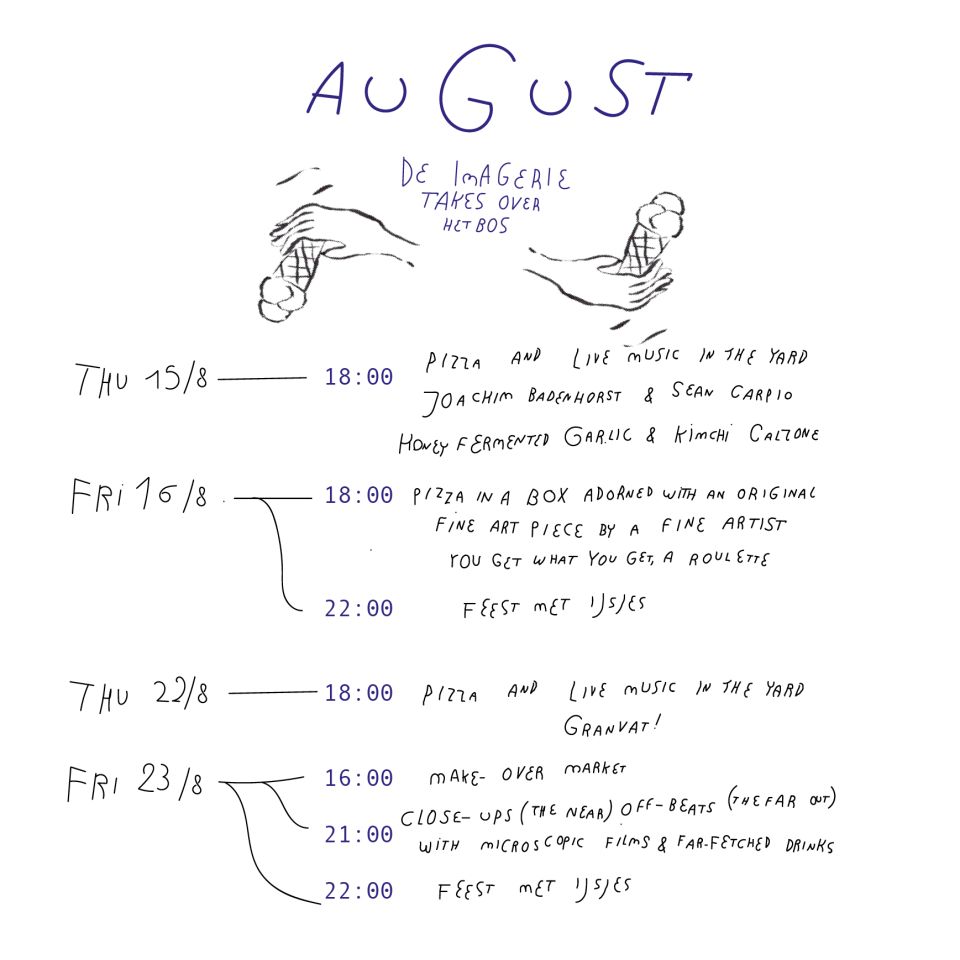 AUGUST
DE IMAGERIE
TAKES OVER
HET BOS
THU 15/8 18:00 PIZZA AND LIVE MUSIC IN THE YARD
JOACHIM BADENHORST & SEAN CARPIO
HONEY FERMENTED GARLIC & KIMCHI CALZONE
FRI 16/8 18:00 PIZZA IN A BOX ADORNED WITH AN ORIGINAL
FINE ART PIECE BY A FINE ARTIST
YOU GET WHAT YOU GET, A ROULETTE
22:00 FEEST MET IJSJES
THU 22/8 18:00 PIZZA AND LIVE MUSIC IN THE YARD
GRANVAT!
FRI 23/8 16:00 MAKE-OVER MARKET
21:00 CLOSE-UPS (THE NEAR) OFF-BEATS (THE FAR OUT)
WITH MICROSCOPIC FILMS & FAR-FETCHED DRINKS
22:00 FEEST MET IJSJES